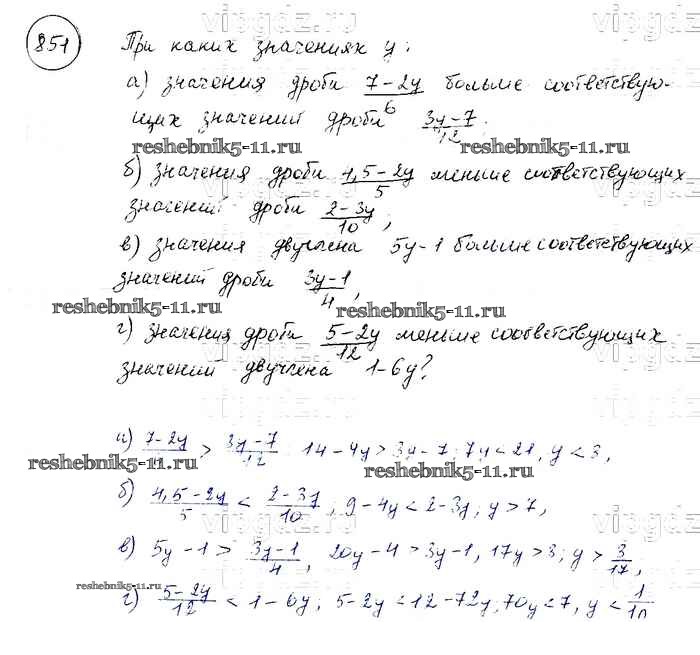 vipgdz
851
При каких значениях y:
а) значения дроби (7-2y)/6 больше соответствую-
щих значений дроби (3y-7)/12;
reshebnik5-11.ru reshebnik5-11.ru
б) значения дроби (4,5-2y)/5 меньше соответствующих
значений дроби (2-3y)/10;
в) значения двучлена 5y-1 больше соответствующих
значений дроби (3y-1)/4,
reshebnik5-11.ru reshebnik5-11.ru
г) значения дроби (5-2y)/12 меньше соответствующих
значений двучлена 1-6y?
vipgdz
а) (7-2y)/ > (3y-7)/12 14-4y > 3y-7, 7y < 21, y < 3,
reshebnik5-11.ru reshebnik5-11.ru
б) (4,5-2y)/5 < (2-3y)/10; 9-4y < 2-3y; y > 7,
vipgdz
в) 5y-1 > (3y-1)/4, 20y-4 > 3y-1, 17y > 3; y > 3/17,
reshebnik5-11.ru
г) (5-2y)/12 < 1-6y; 5-2y < 12-72y, 70y < 7, y < 1/10
vipgdz